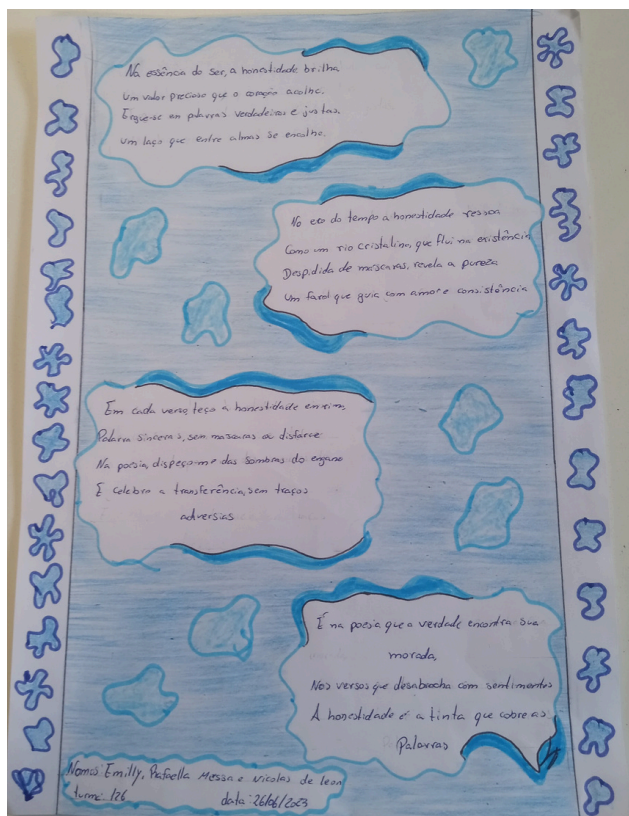 Na essência do ser, a honestidade brilha
Um valor precioso que o coração acolhe.
Ergue-se em palavras verdadeiras e justas,
Um laço que entre almas se encolhe.
No eco do tempo a honestidade ressoa
Como um rio cristalino, que flui na existência
Despidida de mascaras, revela a pureza
Um farol que guia com amor e consistência
Em cada verso, teço a honestidade em mim,
Palavra sinceras, sem mascaras ou disfarce
Na poesia, dispeço-me das sombras do engano
E celebro a transferência, sem traços
adversias
É na poesia que a verdade encontra sua
morada,
Nos versos que desabrocha com sentimentos
A honestidade é a tinta que cobre as
Palavras
Nomes: Emilly, Rafaella Messa e Nicolas de leon
turma: 126 data: 26/06/2023